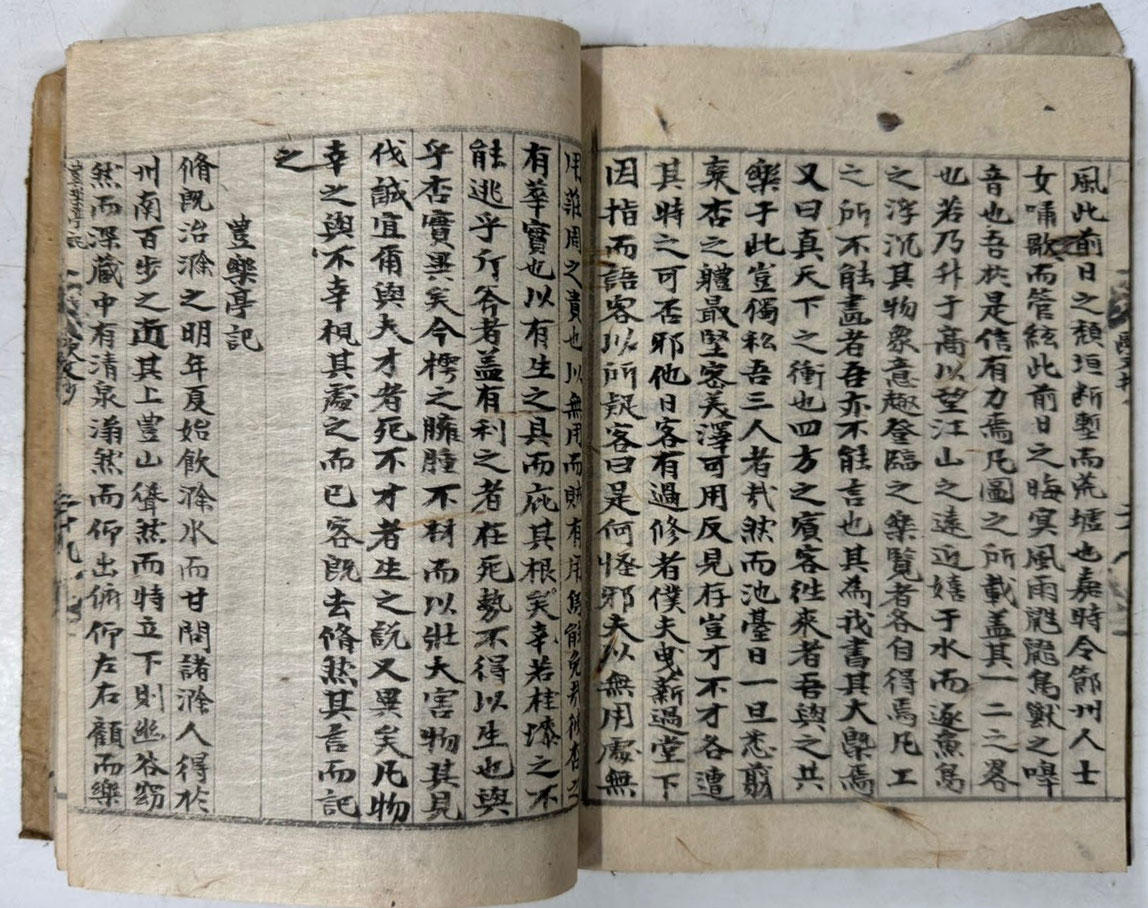 風此前日之頹垣斷塹而荒墟也嘉時令節州人士
女嘯歌而管絃此前日之晦冥風雨鼪鼯鳥獸之嘷
音也吾於是信有力焉凡圖之所載盖其一二之畧
也若乃升于高以望江山之遠近嬉于水而逐魚鳥
之浮沉其物象意趣登臨之樂覽者各自得焉凡工
之所不能畵者吾亦不能言也其為我書其大槩焉
又曰真天下之衝也四方之賓客徃來者吾與之共
樂于此豈獨私吾三人者㢤然而池臺日一旦悉剪
棄杏之軆最堅密美澤可用反見存豈才不才各遭
其時之可否邪他日客有過修者僕夫曳薪過堂下
因指而語客以所疑客曰是何怪邪夫以無用處無
用莊周之貴也以無用而賊有用烏能免㢤彼杏之
有華實也以有生之具而庇其根矣幸若桂㯃之不
能逃乎斤斧者盖有利之者在死勢不得以生也與
乎否實異矣今樗之臃腫不材而以壯大害物其見
伐誠宜爾與夫才者死不才者生之說又異矣凡物
幸之與不幸視其處之而已客旣去脩然其言而記
之
豊樂亭記
脩旣治滁之明年夏始飮滁水而甘問諸滁人得於
州南百步之近其上豊山聳然而特立下則幽谷窈
然而深藏中有清泉滃然而仰出俯仰左右顧而樂
豊樂亭記 三十九